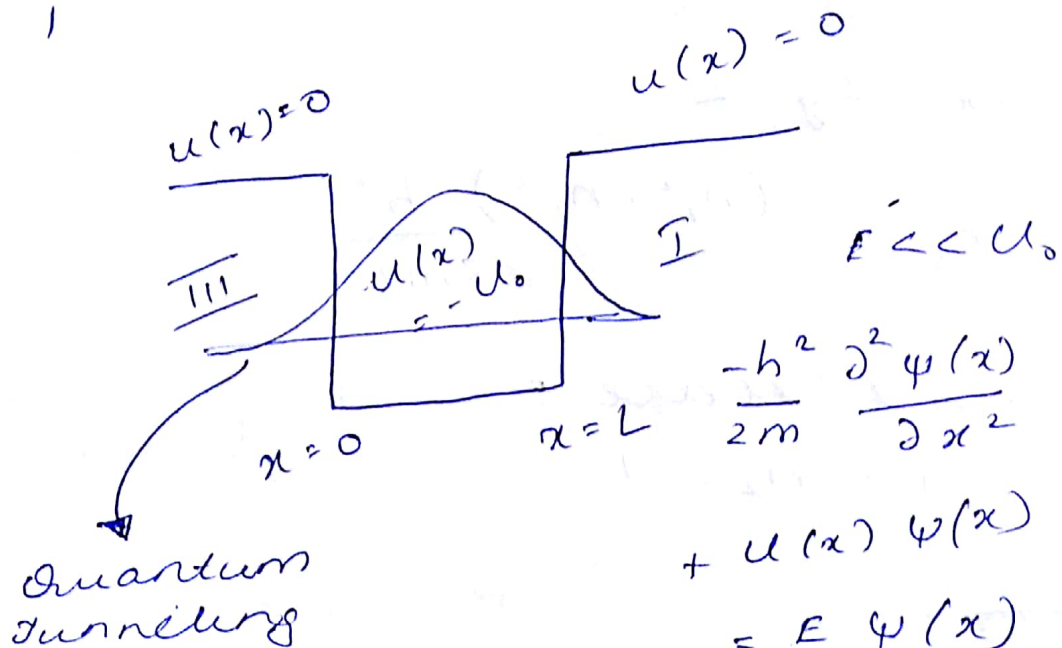 u(x) = 0
u(x) = 0
III
u(x)
= -U₀
I
E << U₀
x = 0
x = L
-h² ∂² ψ(x)
2m ∂x²
+ U(x) ψ(x)
= E ψ(x)
Quantum
Tunneling